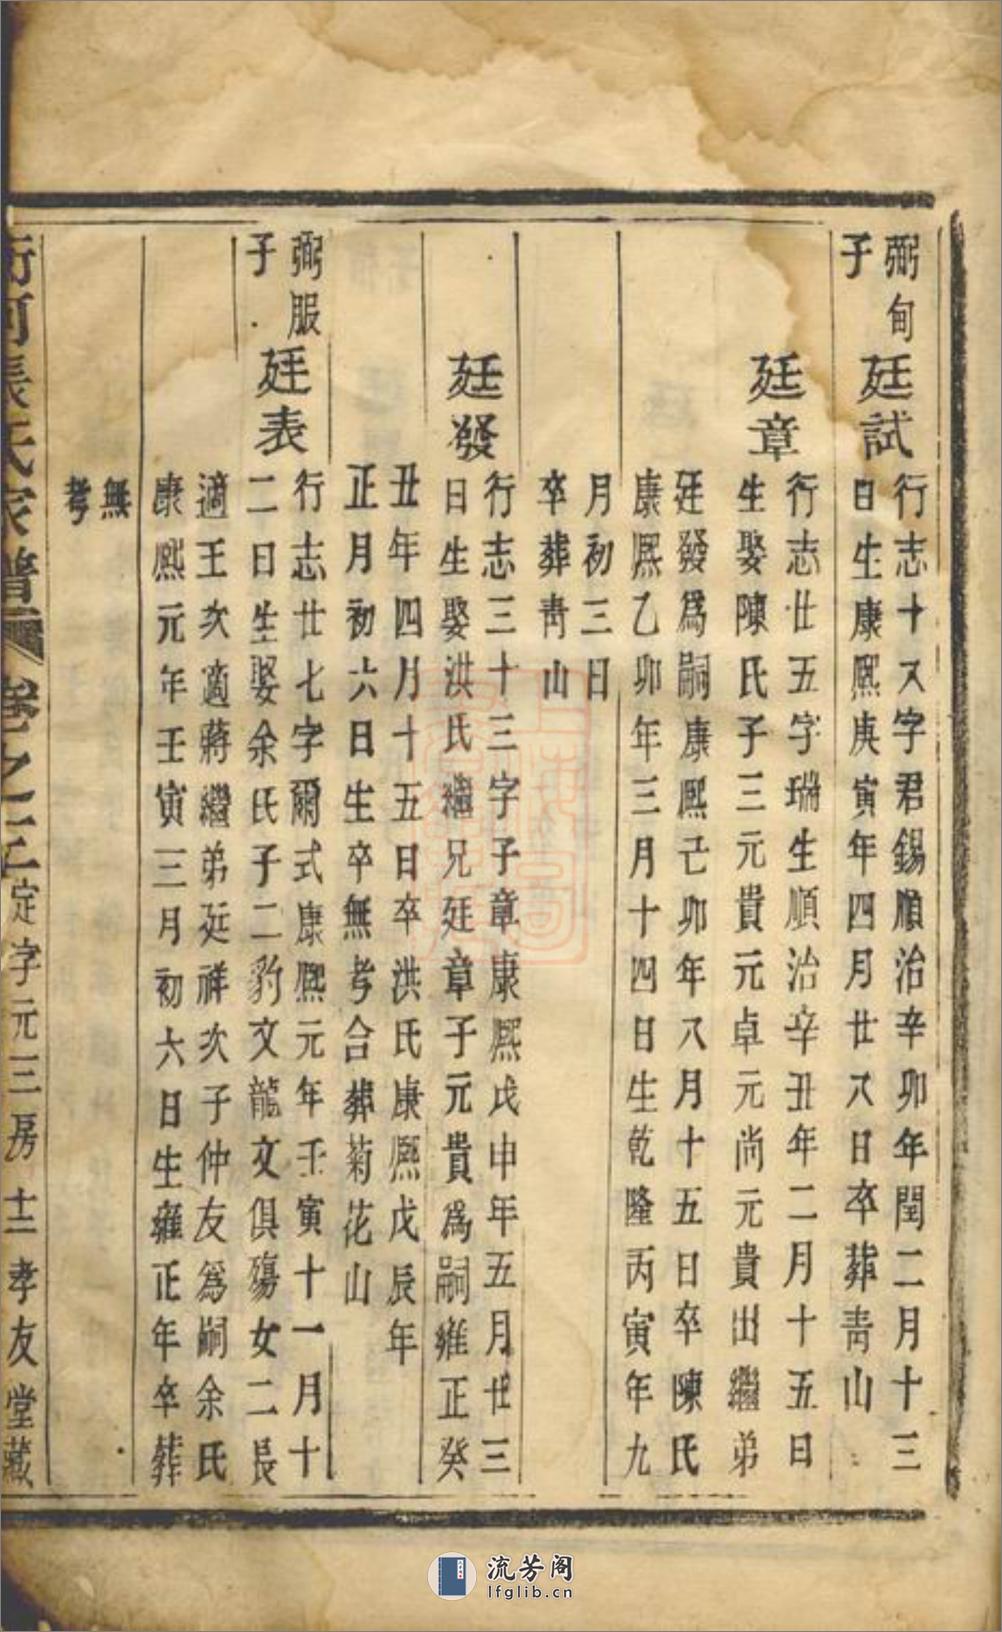 弼甸
子
廷試
行志十八字君錫順治辛卯年閏二月十三
日生康熙庚寅年四月廿八日卒葬青山
廷章
行志廿五字瑞生順治辛丑年二月十五日
生娶陳氏子三元貴元卓元尚元貴出繼弟
廷發爲嗣康熙己卯年八月十五日卒陳氏
康熙乙卯年三月十四日生乾隆丙寅年九
月初三日
卒葬青山
廷發
行志三十三字子章康熙戊申年五月廿三
日生娶洪氏繼兄廷章子元貴爲嗣雍正癸
丑年四月十五日卒洪氏康熙戊辰年
正月初六日生卒無考合葬菊花山
弼服
子
廷表
行志廿七字爾式康熙元年壬寅十一月十
二日生娶余氏子二豹文龍文俱殤女二長
適王次適蔣繼弟廷祥次子仲友爲嗣余氏
康熙元年壬寅三月初六日生雍正年卒葬
無
考
張氏家譜 卷之三 定字元三房 十二 孝友堂藏
流芳阁
lfglib.cn